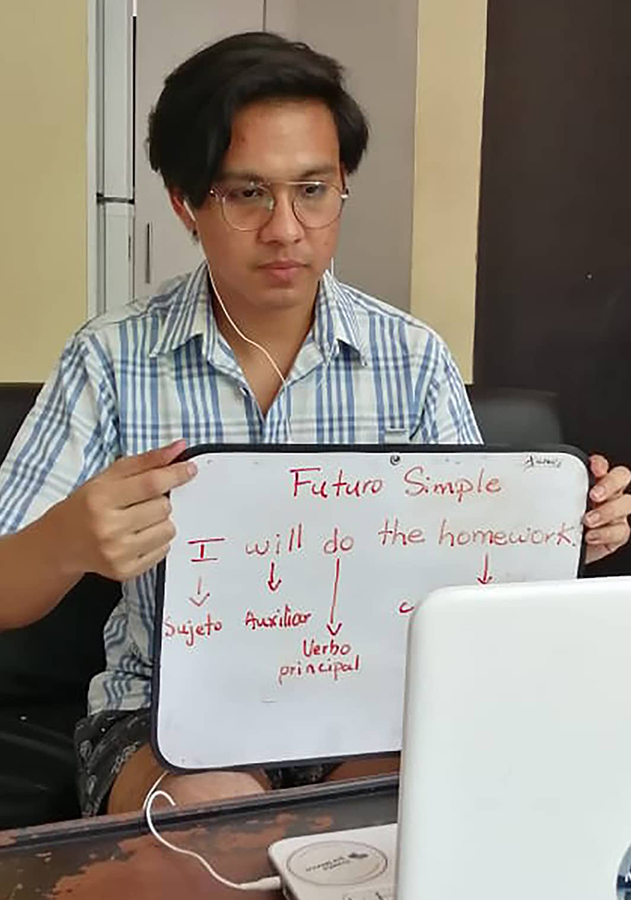 Futuro Simple
I will do the homework.
Sujeto Auxiliar
Verbo
principal